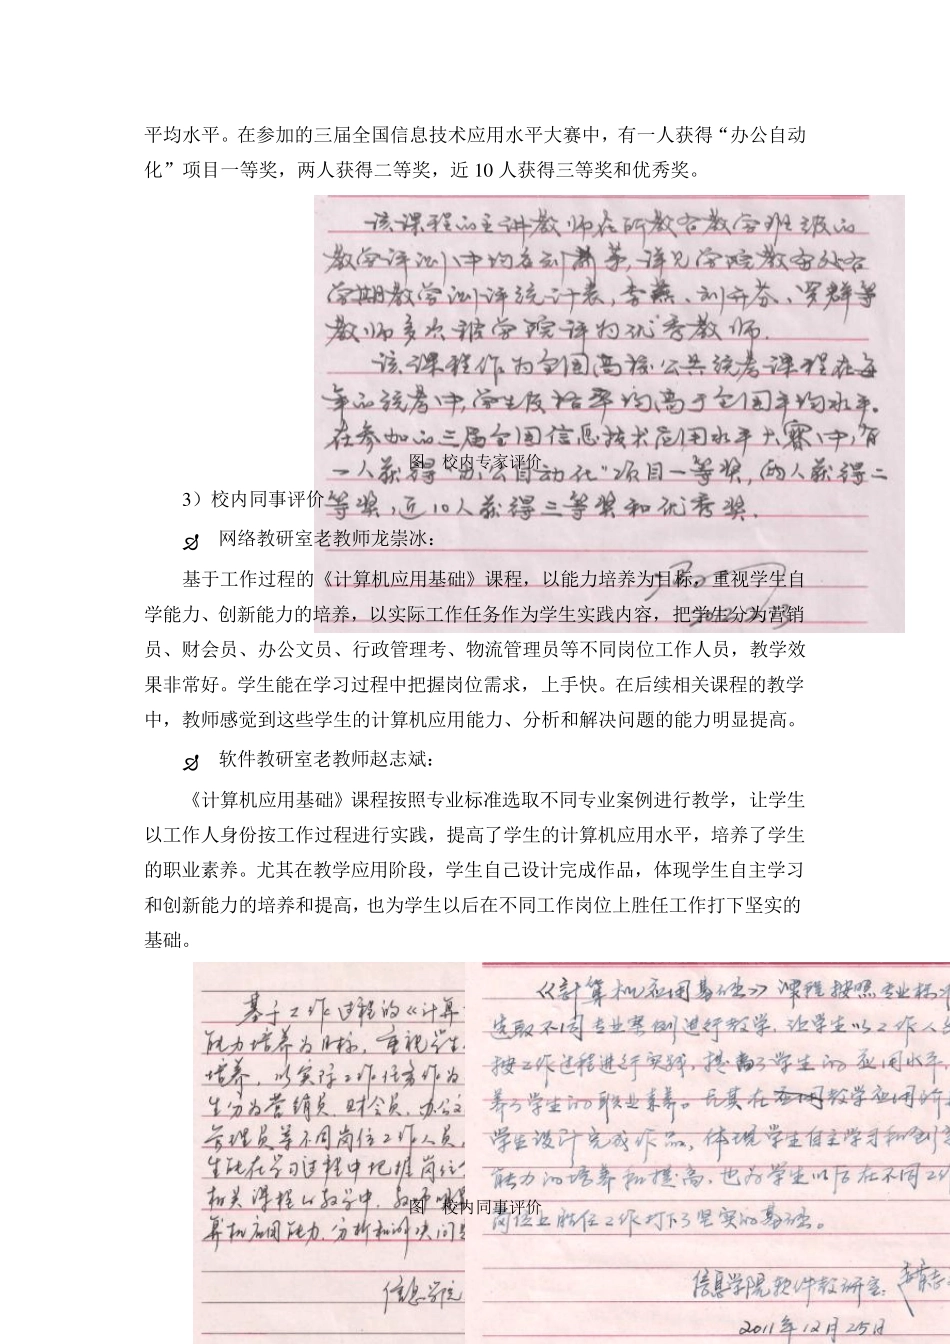 平均水平。在参加的三届全国信息技术应用水平大赛中，有一人获得“办公自动
化”项目一等奖，两人获得二等奖，近 10 人获得三等奖和优秀奖。
该课程的主讲教师在所教各教学班级的
教学评测中均名列前茅,详见学院教务处各
学期教学测评统计表,李燕、刘卉芬、罗群等
教师多次被学院评为优秀教师.
该课程作为全国高校公共统考课程在每
年的统考中,学生及格率均高于全国平均水平。
在参加的三届全国信息技术应用水平大赛中,有
一人获得“办公自动化”项目一等奖,两人获得二
等奖,近10人获得三等奖和优秀奖.
图 校内专家评价
3）校内同事评价
网络教研室老教师龙崇冰：
基于工作过程的《计算机应用基础》课程，以能力培养为目标，重视学生自
学能力、创新能力的培养，以实际工作任务作为学生实践内容，把学生分为营销
员、财会员、办公文员、行政管理考、物流管理员等不同岗位工作人员，教学效
果非常好。学生能在学习过程中把握岗位需求，上手快。在后续相关课程的教学
中，教师感觉到这些学生的计算机应用能力、分析和解决问题的能力明显提高。
软件教研室老教师赵志斌：
《计算机应用基础》课程按照专业标准选取不同专业案例进行教学，让学生
以工作人身份按工作过程进行实践，提高了学生的计算机应用水平，培养了学生
的职业素养。尤其在教学应用阶段，学生自己设计完成作品，体现学生自主学习
和创新能力的培养和提高，也为学生以后在不同工作岗位上胜任工作打下坚实的
基础。
基于工作过程的《计算
能力培养为目标，重视学生
培养，以实际工作任务作为
生分为营销员、财会员、办公文
管理员等不同岗位工作人员，
生能在学习过程中把握岗位
相关课程的教学中，教师
算机应用能力、分析和解决问题
信息学院
《计算机应用基础》课程按照专业标准
选取不同专业案例进行教学，让学生以工作人
按工作过程进行实践，提高了学生的应用水平，
养了学生的职业素养。尤其在教学应用阶
学生设计完成作品，体现学生自主学习和创新
能力的培养和提高，也为学生以后在不同工作
岗位上胜任工作打下了坚实的基础。
信息学院软件教研室
2011年12月25日
图 校内同事评价